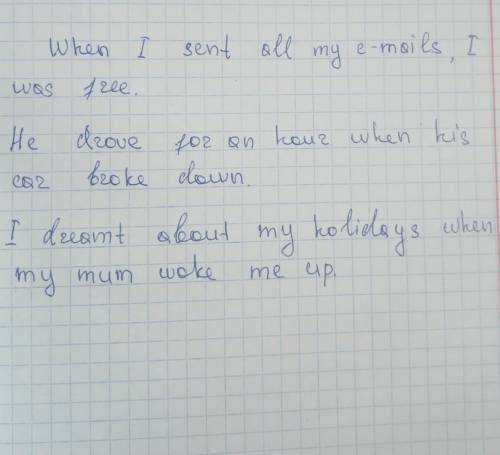 When I sent all my e-mails, I
was free.
He drove for an hour when his
car broke down.
I dreamt about my holidays when
my mum woke me up.